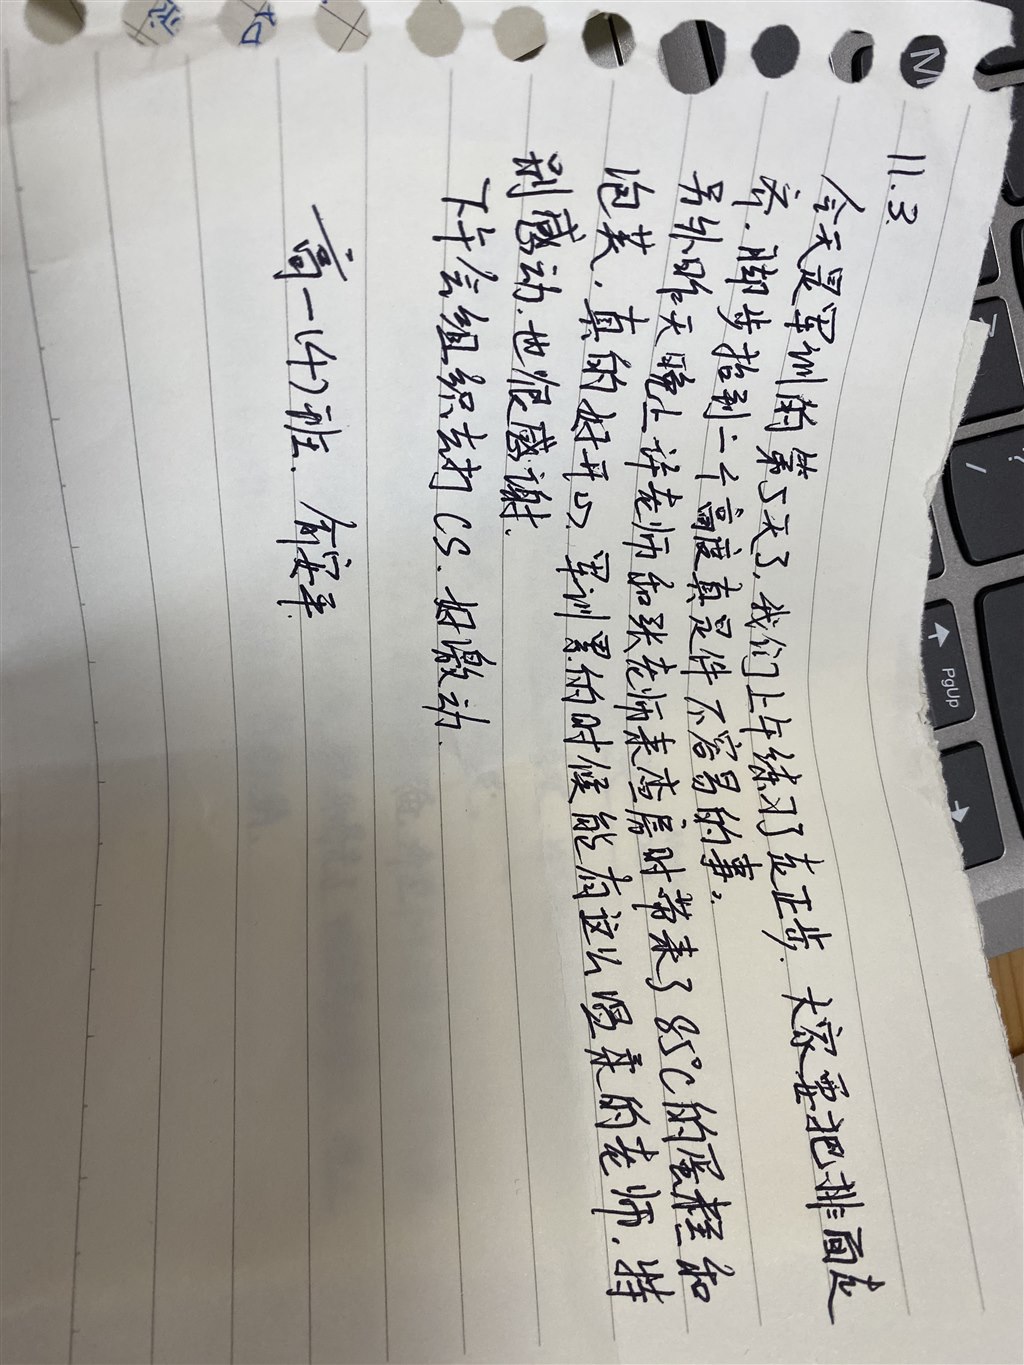 11.3
今天是军训的第5天了，我们上午练习了走正步，大家要把排面走
齐，脚步抬到一个高度真是件不容易的事。
另外昨天晚上许老师和张老师来查房时带来了85°C的蛋糕和
泡芙，真的好开心，军训累的时候能有这么温柔的老师，特
别感动，也很感谢．
下午会组织去打CS．好激动．
高一(4)班．俞安平
M
PgUp
?
/